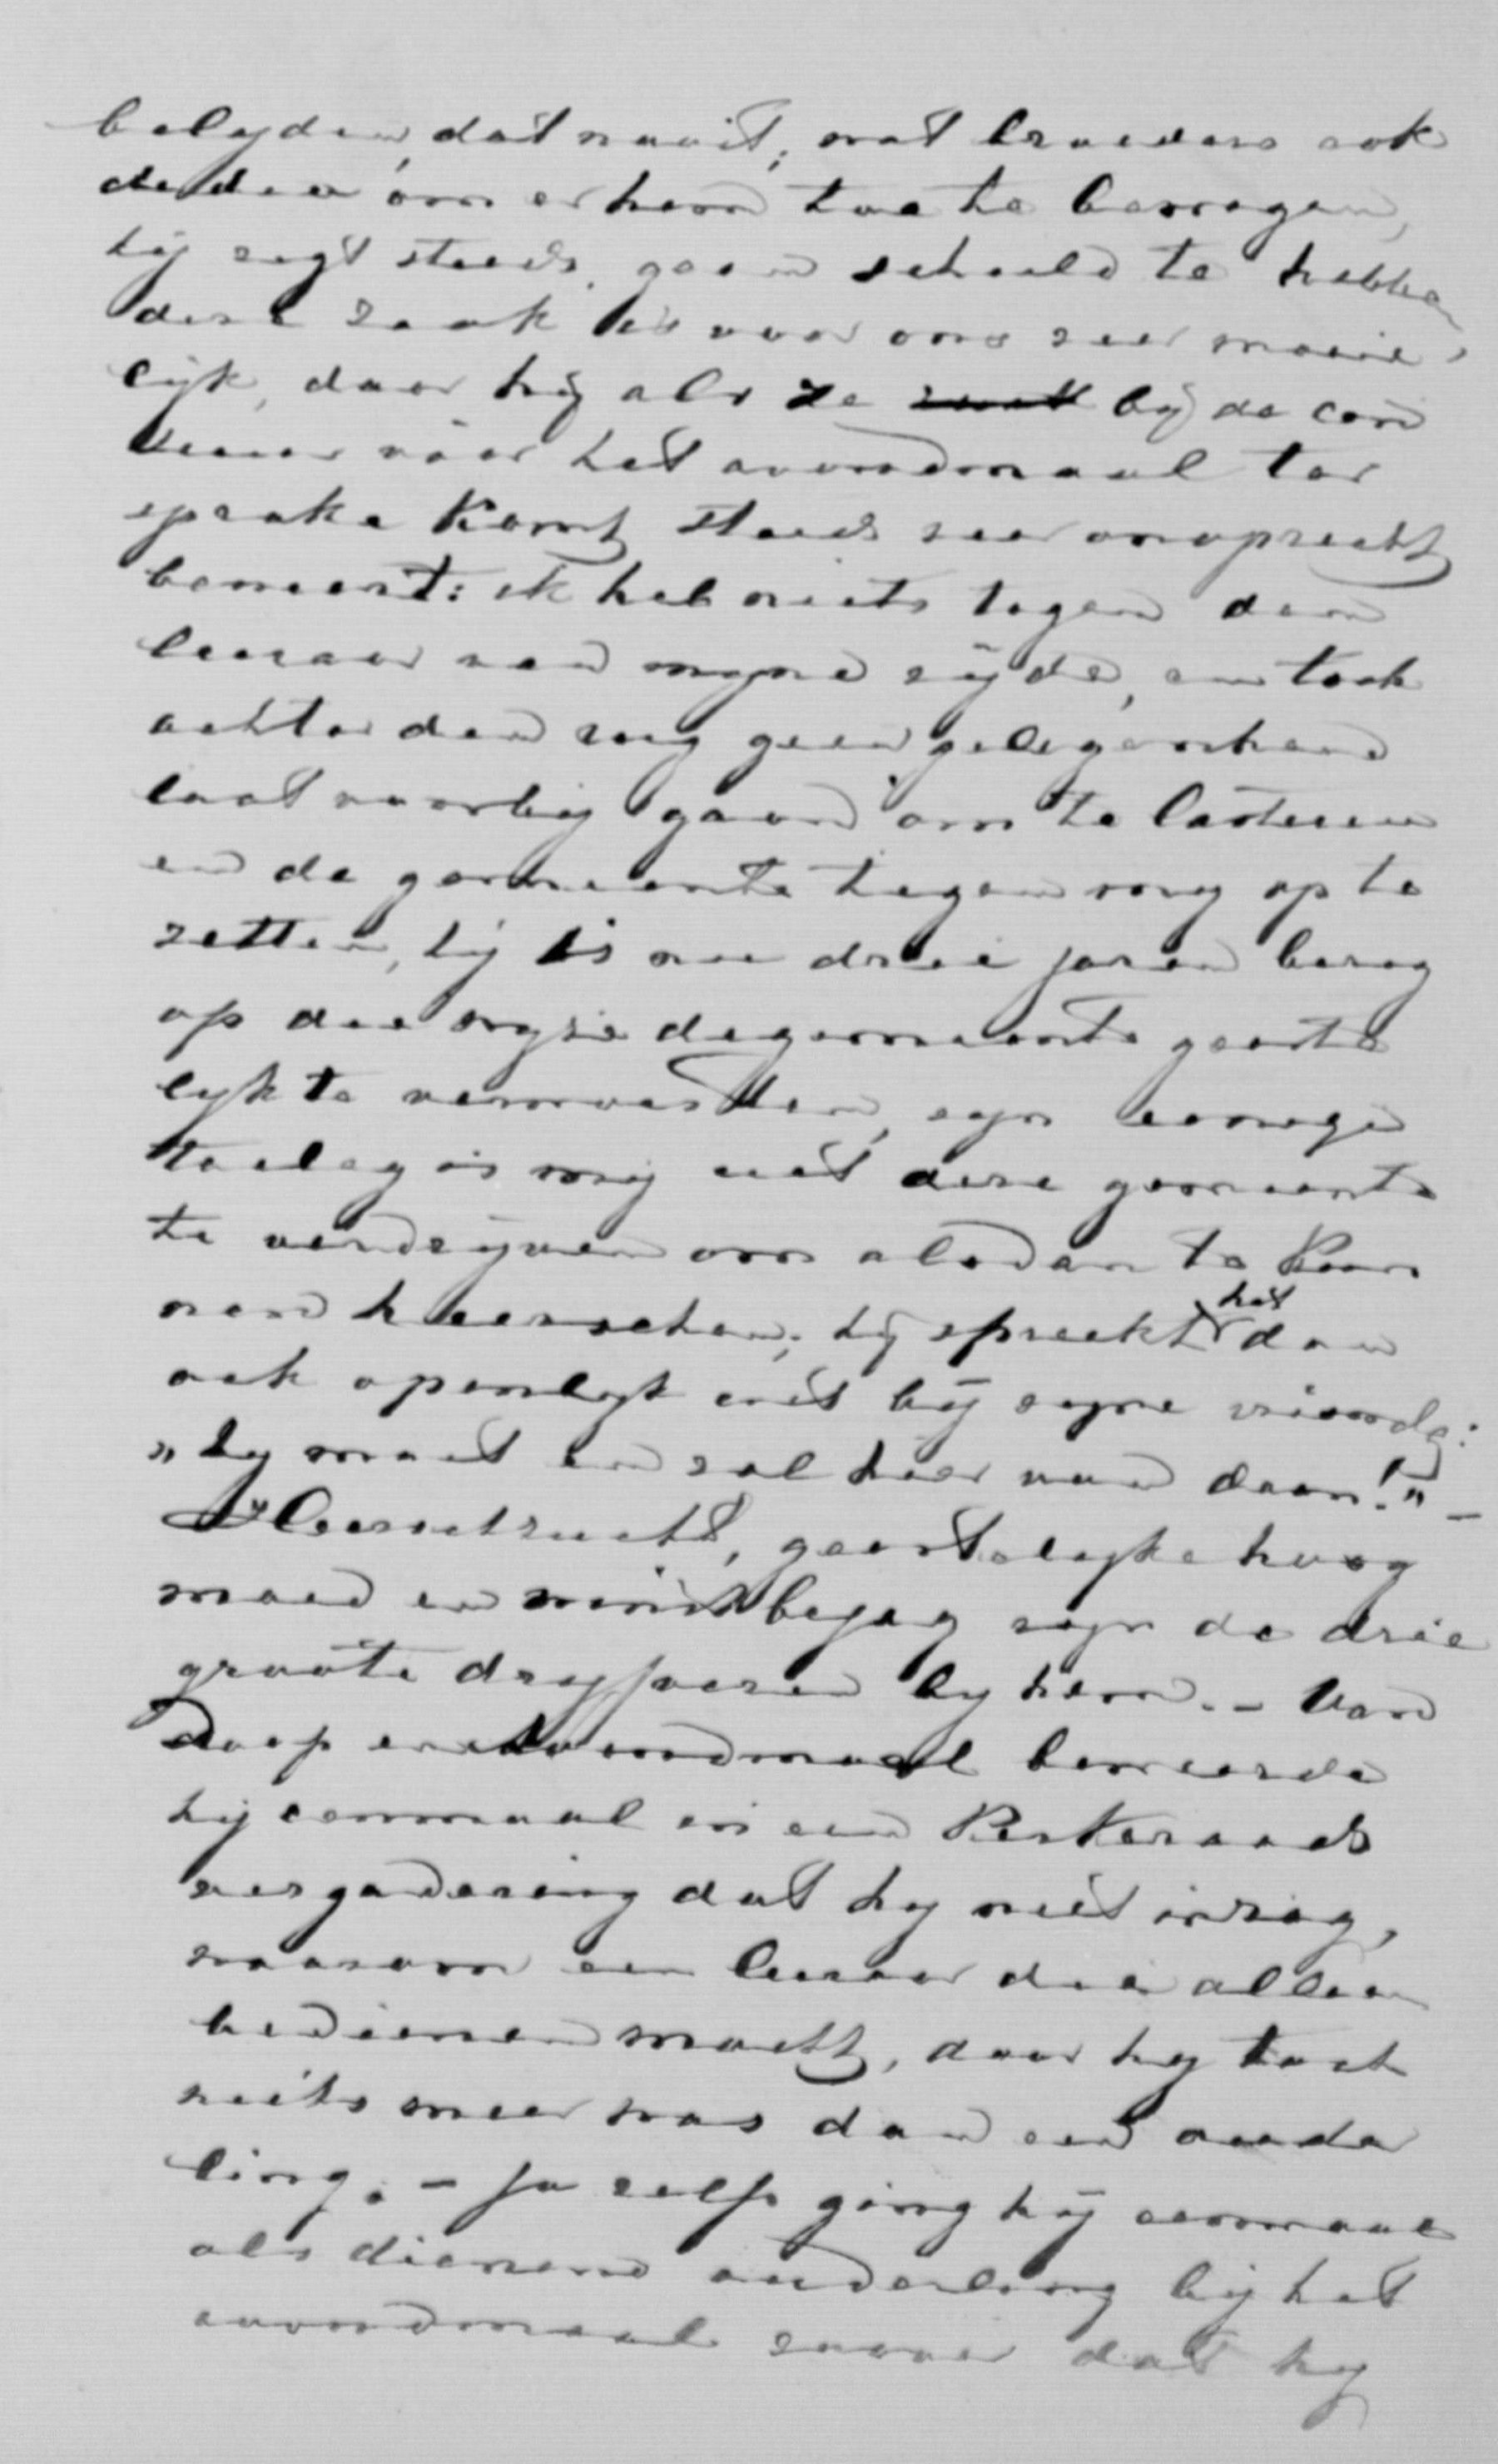 belyden, dat nooit, wat broeders ook
deden om er hem toe te bewegen,
hij zegt steeds, geen schuld te hebben
deze zaak is voor ons zeer moeie-
lijk, daar hij als ze bij de cen
suur vóór het avondmaal ter
sprake komt steeds zeer onoprecht
beweert: ik heb niets tegen den
leeraar van myne zijde, en toch
achter den rug geen gelegenheid
laat voorbij gaan om te lasteren
en de gemeente tegen my op te
zetten, hij is nu drie jaren bezig
op die wyze de gemeente geeste
lyk te verwoesten, zyn eenige
toeleg is mij uit deze gemeente
te verdrijven om alsdan te kun
nen heerschen; hij spreekt het dan
ook openlyk uit bij zyne vrienden:
„hy moet en zal hier van daan!" –
Heerschzucht, geestelyke hoog
moed en winstbejag zyn de drie
groote dryfveren by hem. – Van
Doop en Avondmaal beweerde
hij eenmaal in een Kerkeraads
vergadering dat hy niet inzag,
waarom een leeraar die alleen
bedienen moest, daar hy toch
niets meer was dan een ouder
ling. – Ja zelfs ging hij eenmaal
als dienend ouderling bij het
avondmaal zoover dat hy